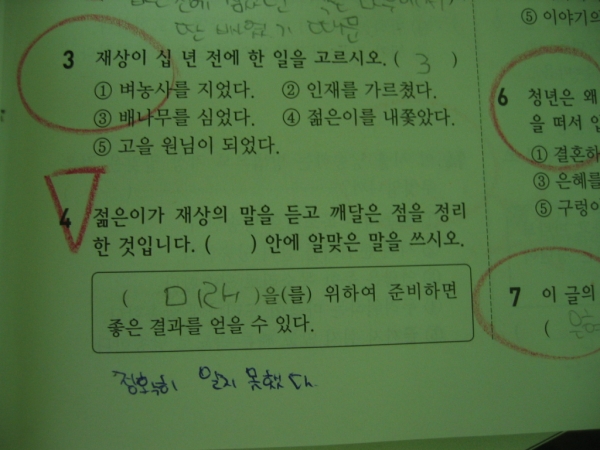 딴 배웠기 때문
⑤ 이야기의
3 재상이 십 년 전에 한 일을 고르시오. ( 3 )
① 벼농사를 지었다. ② 인재를 가르쳤다.
③ 배나무를 심었다. ④ 젊은이를 내쫓았다.
⑤ 고을 원님이 되었다.
4 젊은이가 재상의 말을 듣고 깨달은 점을 정리
한 것입니다. ( ) 안에 알맞은 말을 쓰시오.
( 미래 )을(를) 위하여 준비하면
좋은 결과를 얻을 수 있다.
정확히 읽지 못했다.
6 청년은 왜
을 떠서 입
① 결혼하
③ 은혜를
⑤ 구렁이
7 이 글의
(